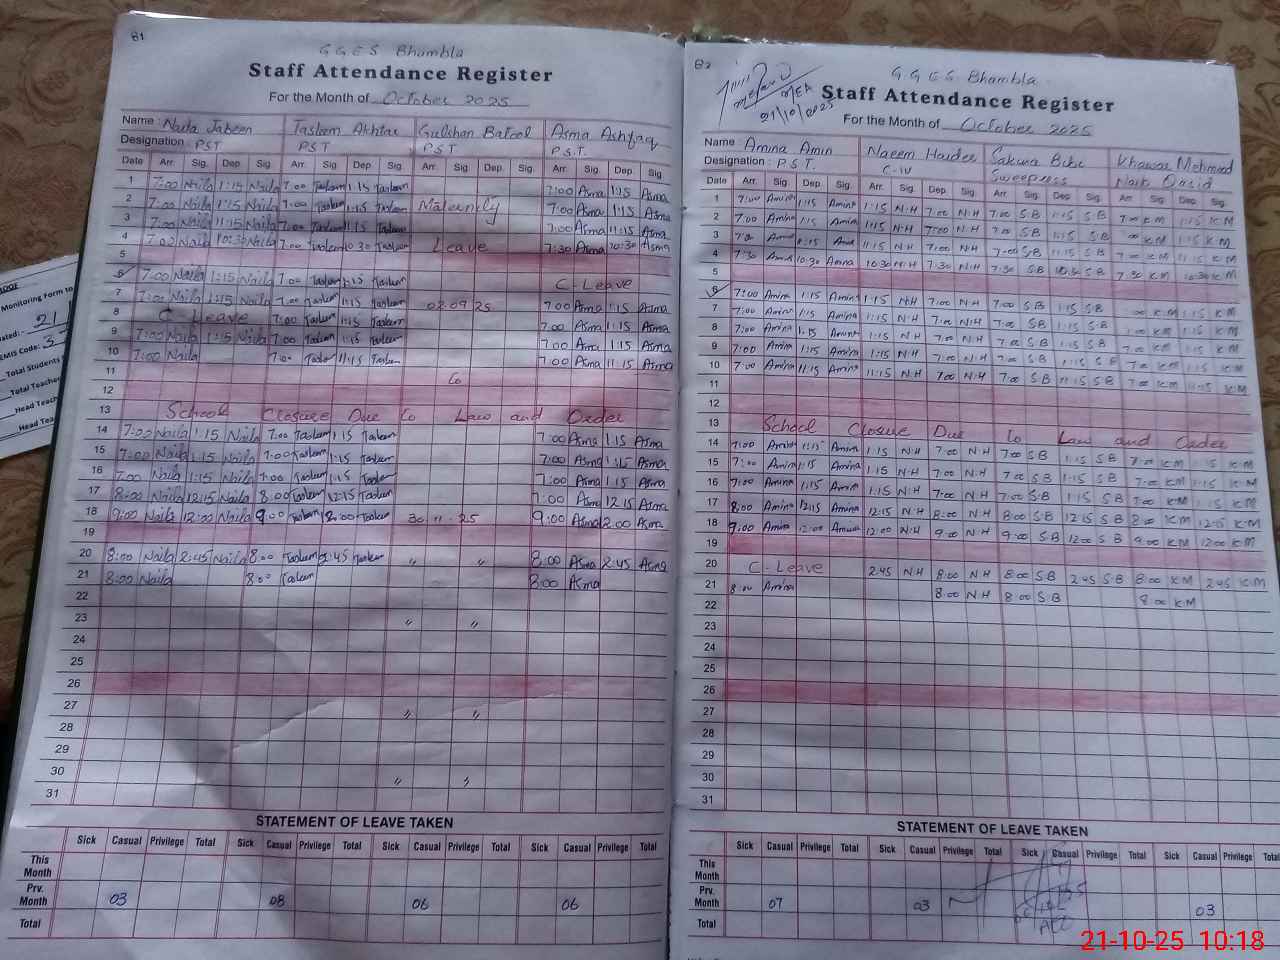 81
G G E S Bhumbla
Staff Attendance Register
For the Month of October 2025
Name : Naila Jabeen Tasleem Akhtar Gulshan Batool Asma Ashfaq
Designation : P.S.T P S T P S T P.S.T.
Date Arr. Sig. Dep Sig. Arr. Sig. Dep Sig. Arr. Sig. Dep Sig Arr. Sig. Dep Sig.
1 7:00 Naila 1:15 Naila 7:00 Tasleem 1:15 Tasleem 7:00 Asma 1:15 Asma
2 7:00 Naila 1:15 Naila 7:00 Tasleem 1:15 Tasleem Maternity 7:00 Asma 1:15 Asma
3 7:00 Naila 11:15 Naila 7:00 Tasleem 11:15 Tasleem 7:00 Asma 11:15 Asma
4 7:00 Naila 10:30 Naila 7:00 Tasleem 10:30 Tasleem Leave 7:30 Asma 10:30 Asma
5
6 7:00 Naila 1:15 Naila 7:00 Tasleem 1:15 Tasleem C-Leave
7 7:00 Naila 1:15 Naila 7:00 Tasleem 1:15 Tasleem 02.09 25 7:00 Asma 1:15 Asma
8 C Leave 7:00 Tasleem 1:15 Tasleem 7:00 Asma 1:15 Asma
9 7:00 Naila 1:15 Naila 7:00 Tasleem 1:15 Tasleem 7:00 Asma 1:15 Asma
10 7:00 Naila 7:00 Tasleem 11:15 Tasleem 7:00 Asma 11:15 Asma
11 To
12
13 School Closure Due to Law and Order
14 7:00 Naila 1:15 Naila 7:00 Tasleem 1:15 Tasleem 7:00 Asma 1:15 Asma
15 7:00 Naila 1:15 Naila 7:00 Tasleem 1:15 Tasleem 7:00 Asma 1:15 Asma
16 7:00 Naila 1:15 Naila 7:00 Tasleem 1:15 Tasleem 7:00 Asma 1:15 Asma
17 8:00 Naila 12:15 Naila 8:00 Tasleem 12:15 Tasleem 7:00 Asma 12 15 Asma
18 9:00 Naila 12:00 Naila 9:00 Tasleem 12:00 Tasleem 30 - 11 - 25 9:00 Asma 12:00 Asma
19
20 8:00 Naila 2:45 Naila 8:00 Tasleem 2:45 Tasleem " " 8:00 Asma 2:45 Asma
21 8:00 Naila 8:00 Tasleem 8:00 Asma
22
23 " "
24
25
26
27 " "
28
29
30 " "
31
STATEMENT OF LEAVE TAKEN
Sick Casual Privilege Total Sick Casual Privilege Total Sick Casual Privilege Total Sick Casual Privilege Total
This Month
Prv. Month 03 08 06 06
Total
82
MEA
21/10/2025
G G E S Bhumbla
Staff Attendance Register
For the Month of October 2025
Name : Amina Amin Naeem Haider Sakina Bibi Khawar Mehmood
Designation : P.S.T. C-IV Sweepress Naib Qasid
Date Arr. Sig. Dep Sig. Arr. Sig. Dep. Sig. Arr Sig. Dep Sig. Arr Sig. Dep Sig.
1 7:00 Amina 1:15 Amina 1:15 N.H 7:00 N.H 7:00 S.B 1:15 S B 7:00 K.M 1:15 K.M
2 7:00 Amina 1:15 Amina 1:15 N.H 7:00 N.H 7:00 S.B 1:15 S B K.M 1:15 K.M
3 7:00 Amina 11:15 11:15 N.H 7:00 N.H 7:00 S.B 11:15 S B K.M
4 7:30 Amina 10:30 Amina 10:30 N.H 7:30 N.H 7:30 S.B 10:30 S.B 7:30 K.M 10:30 K.M
5
6 7:00 Amina 1:15 Amina 1:15 N.H 7:00 N.H 7:00 S.B 1:15 S.B K.M 1:15 K.M
7 7:00 Amina 1:15 Amina 1:15 N.H 7:00 N.H 7:00 S.B 1:15 S.B K.M 1:15 K.M
8 7:00 Amina 1:15 Amina 1:15 N.H 7:00 N.H 7:00 S.B 1:15 S.B 7:00 K.M 1:15 K.M
9 7:00 Amina 1:15 Amina 1:15 N.H 7:00 N.H 7:00 S.B 1:15 S B 7:00 K.M 1:15 K.M
10 7:00 Amina 11:15 Amina 11:15 N.H 7:00 N.H 7:00 S.B 11:15 S.B 7:00 K.M 11:15 K.M
11
12
13 School Closure Due to Law and Order
14 7:00 Amina 1:15 Amina 1:15 N.H 7:00 N.H 7:00 S.B 1:15 S.B 7:00 K.M 1:15 K.M
15 7:00 Amina 1:15 Amina 1:15 N.H 7:00 N.H 7:00 S.B 1:15 S.B 7:00 K.M 1:15 K.M
16 7:00 Amina 1:15 Amina 1:15 N.H 7:00 N.H 7:00 S.B 1:15 S.B 7:00 K.M 1:15 K.M
17 8:00 Amina 12:15 Amina 12:15 N.H 8:00 N.H 8:00 S.B 12:15 S.B 8:00 K.M 12:15 K.M
18 9:00 Amina 12:00 Amina 12:00 N.H 9:00 N.H 9:00 S.B 12:00 S.B 9:00 K.M 12:00 K.M
19
20 C-Leave 2:45 N.H 8:00 N.H 8:00 S.B 2:45 S.B 8:00 K.M 2:45 K.M
21 8:00 Amina 8:00 N.H 8:00 S.B 8:00 K.M
22
23
24
25
26
27
28
29
30
31
STATEMENT OF LEAVE TAKEN
Sick Casual Privilege Total Sick Casual Privilege Total Sick Casual Privilege Total Sick Casual Privilege Total
This Month
Prv. Month 07 03 03
Total
Monitoring Form to
21
EMIS Code: 3
Total Students
Total Teacher
Head Teac
Head Tea
21-10-25 10:18